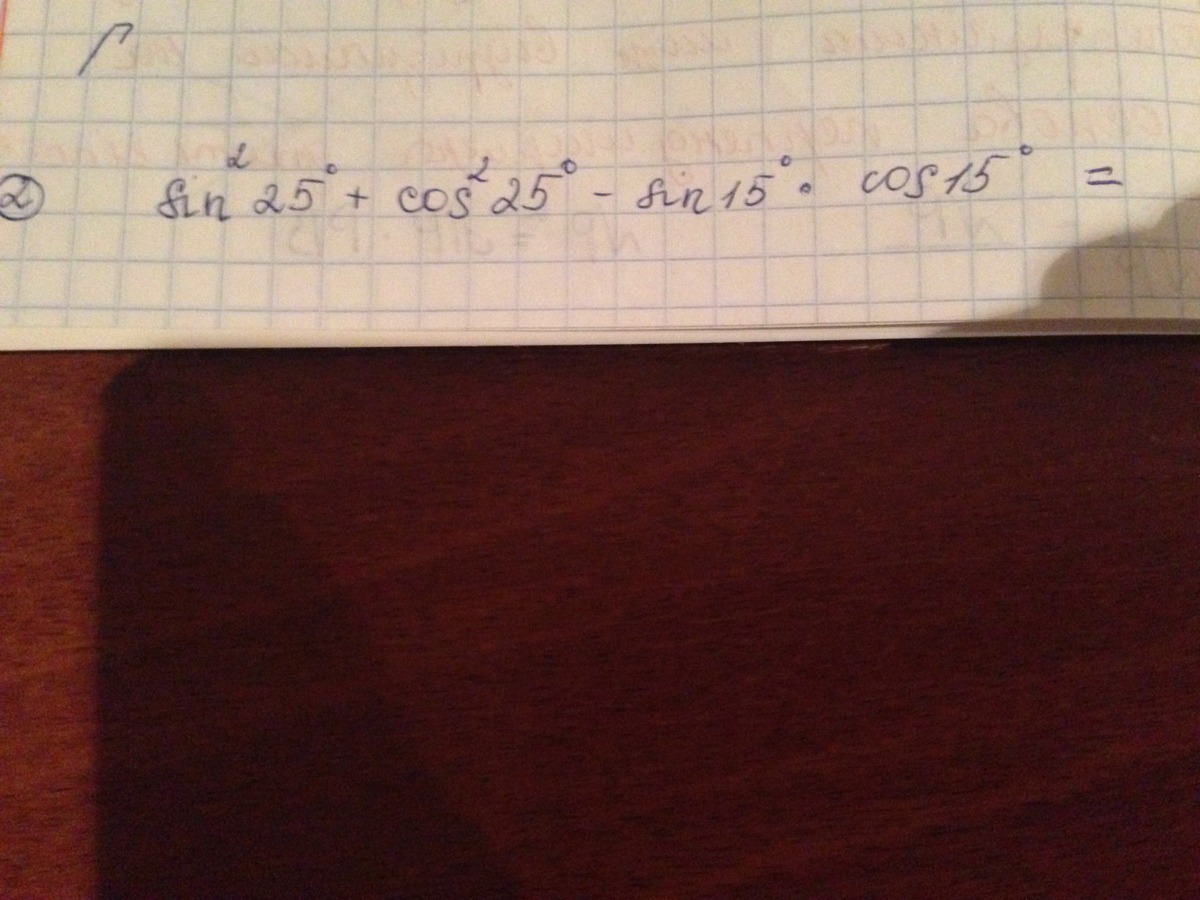 ② sin²25° + cos²25° - sin15° · cos15° =